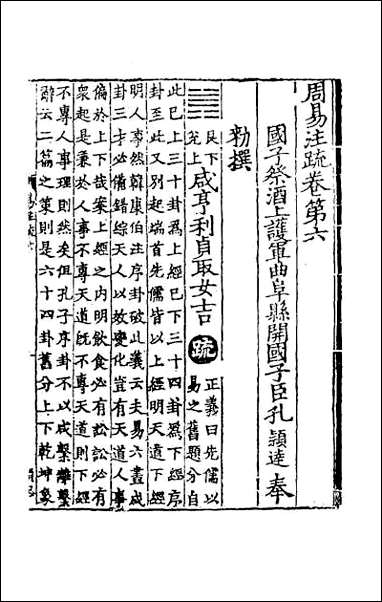 周易注疏卷第六
國子祭酒上護軍曲阜縣開國子臣孔穎達奉
勑撰
艮下
兌上
咸亨利貞取女吉
疏
正義曰先儒以
易之舊題分自
此已上三十卦爲上經已下三十四卦爲下經序
卦至此又別起端首先儒皆以上經明天道下經
明人事然韓康伯注序卦破此義云夫易六畫成
卦三才必備錯綜天人以效變化豈有天道人事
偏於上下哉案上經之內明飲食必有訟訟必有
衆起是兼於人事不專天道既不專天道則下經
不專人事理則然矣但孔子序卦不以咸繫離繫
辭云二篇之策則是六十四卦舊分上下乾坤象